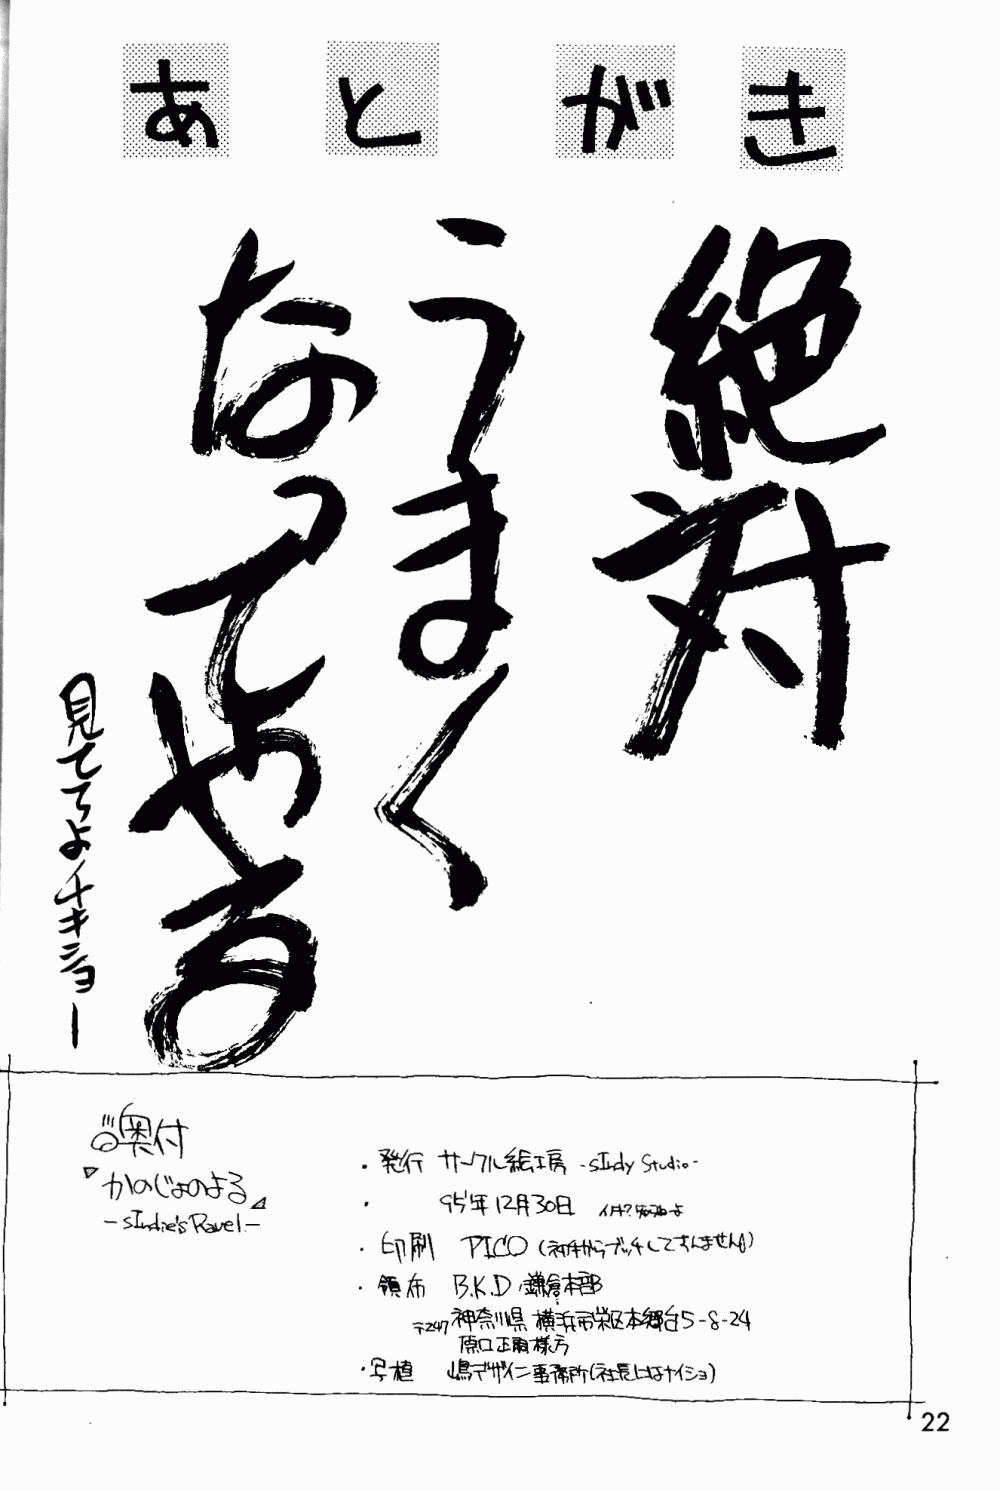 あとがき
絶対
うまく
なってやる
見てろよチキショー
奥付
かのじょのよる
-sIndie's Ravel-
・発行 サークル絵工房 -sIndy Studio-
・ 95年12月30日
・印刷 PICO
・領布 B.K.D 鎌倉本部
〒247 神奈川県横浜市栄区本郷台5-8-24
原口正爾様方
・写植 嶋デザイン事務所(社長にはナイショ)
22